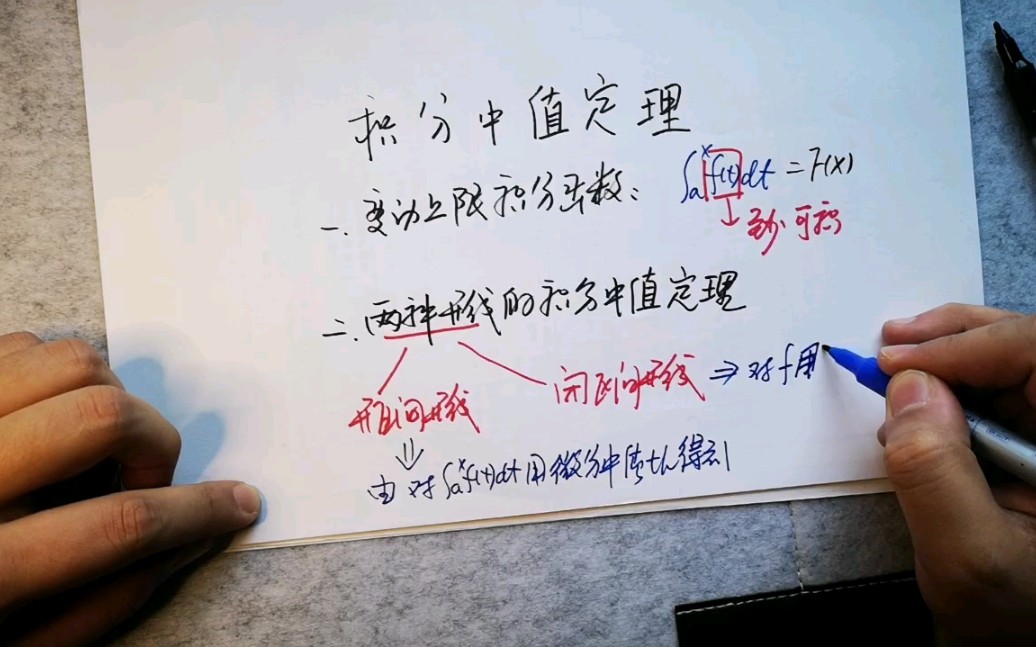 积分中值定理
一.变动上限积分函数: ∫ₐˣf(t)dt = F(x)
↓ 至少可积
二.两种形式的积分中值定理
开区间形式
闭区间形式 ⇒ 对f用
⇓
由对∫ₐˣf(t)dt用微分中值th得到